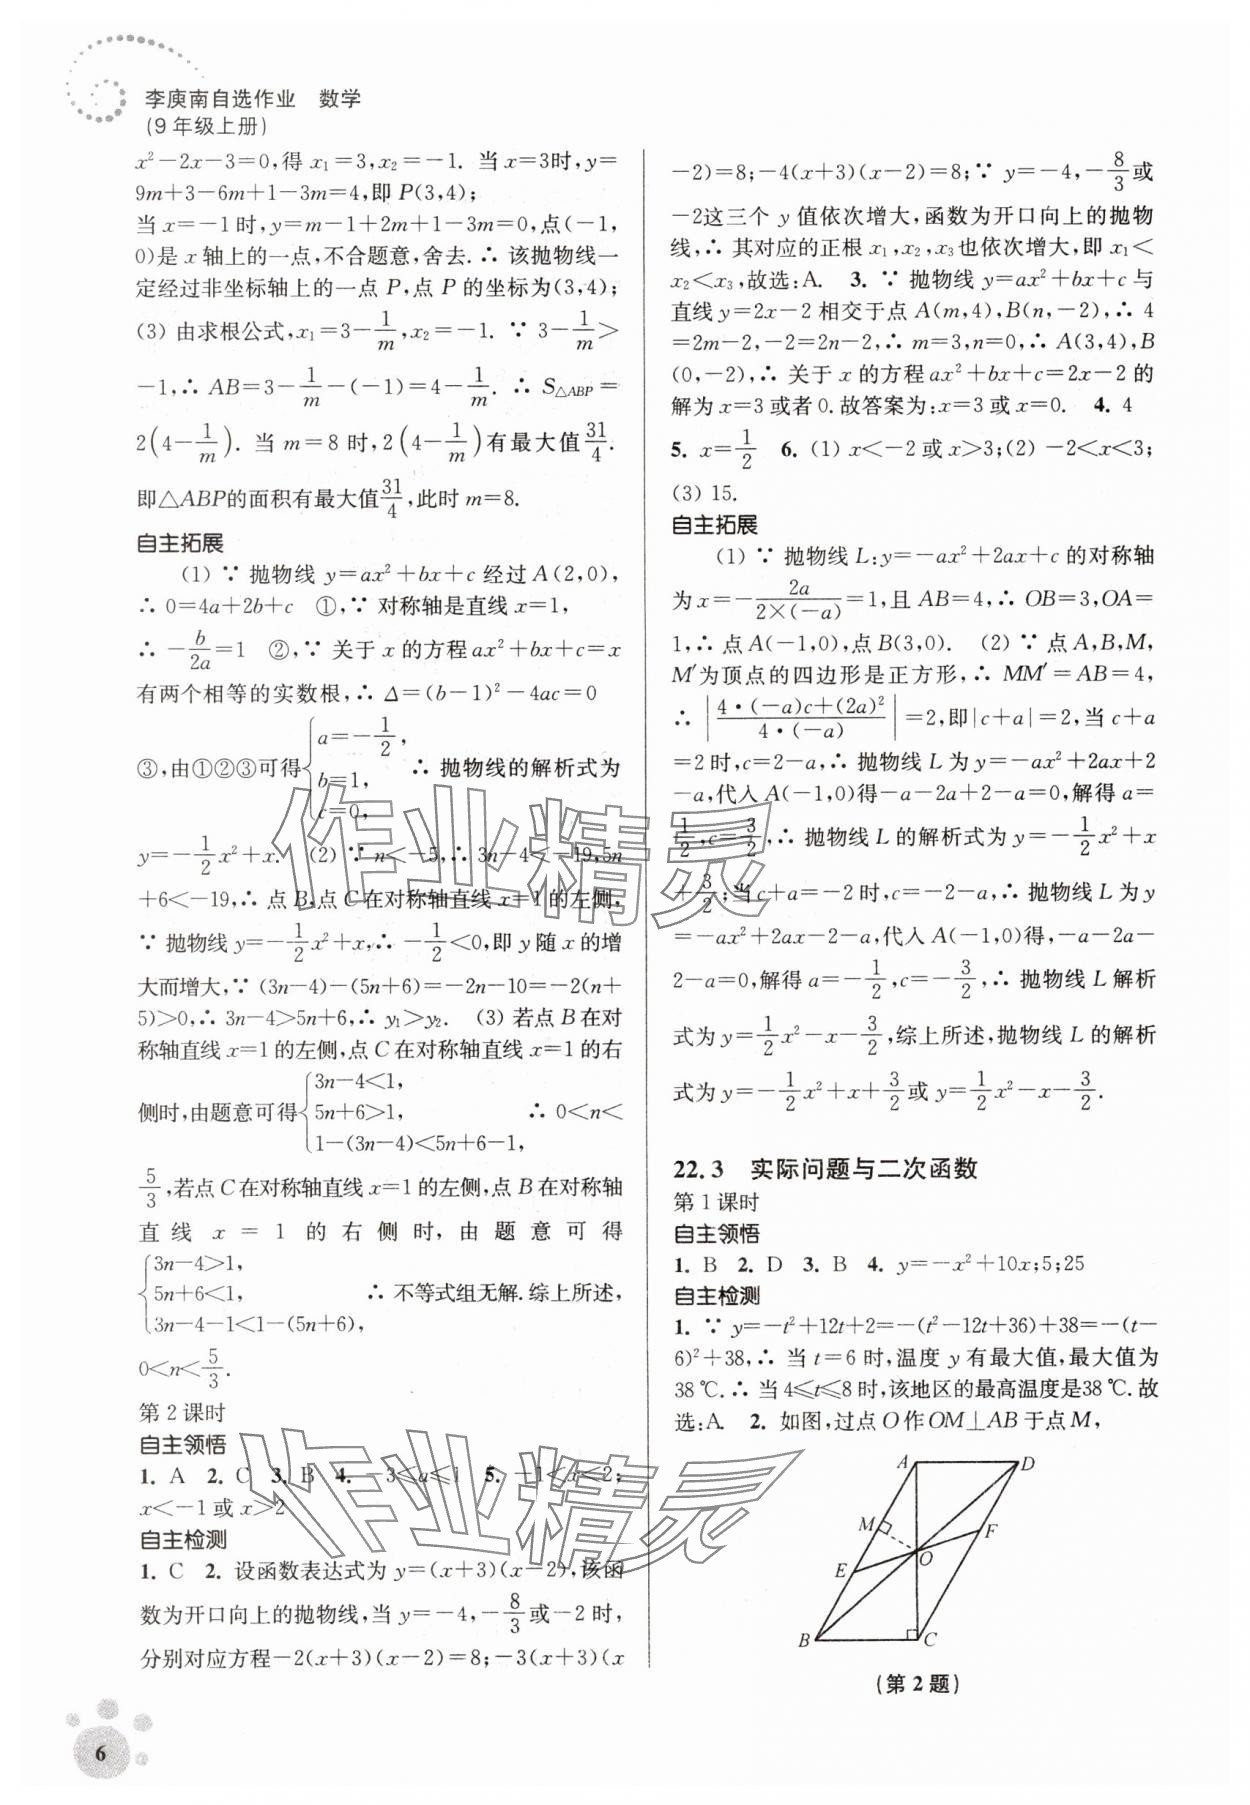 李庾南自选作业 数学
(9年级上册)
x²-2x-3=0,得 x₁=3,x₂=-1. 当x=3时,y=
9m+3-6m+1-3m=4,即 P(3,4);
当 x=-1 时,y=m-1+2m+1-3m=0,点(-1,
0)是 x 轴上的一点,不合题意,舍去.∴ 该抛物线一
定经过非坐标轴上的一点 P,点 P 的坐标为(3,4);
(3) 由求根公式,x₁=3-1/m,x₂=-1. ∵ 3-1/m>
-1,∴ AB=3-1/m-(-1)=4-1/m. ∴ S△ABP=
2(4-1/m). 当 m=8 时,2(4-1/m)有最大值31/4.
即△ABP的面积有最大值31/4,此时 m=8.
自主拓展
(1) ∵ 抛物线 y=ax²+bx+c 经过 A(2,0),
∴ 0=4a+2b+c ①,∵ 对称轴是直线 x=1,
∴ -b/2a=1 ②,∵ 关于 x 的方程 ax²+bx+c=x
有两个相等的实数根,∴ Δ=(b-1)²-4ac=0
③,由①②③可得{a=-1/2, b=1, c=0, ∴ 抛物线的解析式为
y=-1/2x²+x. (2) ∵ n<-5,∴ 3n-4<-19,5n
+6<-19,∴ 点 B,点 C 在对称轴直线 x=1 的左侧,
∵ 抛物线 y=-1/2x²+x,∴ -1/2<0,即 y 随 x 的增
大而增大,∵ (3n-4)-(5n+6)=-2n-10=-2(n+
5)>0,∴ 3n-4>5n+6,∴ y₁>y₂. (3) 若点 B 在对
称轴直线 x=1 的左侧,点 C 在对称轴直线 x=1 的右
侧时,由题意可得{3n-4<1, 5n+6>1, 1-(3n-4)<5n+6-1, ∴ 0<n<
5/3,若点 C 在对称轴直线 x=1 的左侧,点 B 在对称轴
直线 x=1 的右侧时,由题意可得
{3n-4>1, 5n+6<1, 3n-4-1<1-(5n+6), ∴ 不等式组无解.综上所述,
0<n<5/3.
第 2 课时
自主领悟
1. A 2. C 3. B 4. -3≤a≤1 5. -1<x<2;
x<-1 或 x>2
自主检测
1. C 2. 设函数表达式为 y=(x+3)(x-2),该函
数为开口向上的抛物线,当 y=-4,-8/3或-2 时,
分别对应方程-2(x+3)(x-2)=8;-3(x+3)(x
-2)=8;-4(x+3)(x-2)=8;∵ y=-4,-8/3或
-2这三个 y 值依次增大,函数为开口向上的抛物
线,∴ 其对应的正根 x₁,x₂,x₃也依次增大,即 x₁<
x₂<x₃,故选:A. 3. ∵ 抛物线 y=ax²+bx+c 与
直线 y=2x-2 相交于点 A(m,4),B(n,-2),∴ 4
=2m-2,-2=2n-2,∴ m=3,n=0,∴ A(3,4),B
(0,-2),∴ 关于 x 的方程 ax²+bx+c=2x-2 的
解为 x=3 或者 0.故答案为:x=3 或 x=0. 4. 4
5. x=1/2 6. (1) x<-2 或 x>3;(2) -2<x<3;
(3) 15.
自主拓展
(1) ∵ 抛物线 L:y=-ax²+2ax+c 的对称轴
为 x=-2a/(2×(-a))=1,且 AB=4,∴ OB=3,OA=
1,∴ 点 A(-1,0),点 B(3,0). (2) ∵ 点 A,B,M,
M′为顶点的四边形是正方形,∴ MM′=AB=4,
∴ |(4·(-a)c+(2a)²)/(4·(-a))|=2,即|c+a|=2,当 c+a
=2 时,c=2-a,∴ 抛物线 L 为 y=-ax²+2ax+2
-a,代入 A(-1,0)得-a-2a+2-a=0,解得 a=
1/2,c=3/2,∴ 抛物线 L 的解析式为 y=-1/2x²+x
+3/2;当 c+a=-2 时,c=-2-a,∴ 抛物线 L 为 y
=-ax²+2ax-2-a,代入 A(-1,0)得,-a-2a-
2-a=0,解得 a=-1/2,c=-3/2,∴ 抛物线 L 解析
式为 y=1/2x²-x-3/2,综上所述,抛物线 L 的解析
式为 y=-1/2x²+x+3/2或 y=1/2x²-x-3/2.
22.3 实际问题与二次函数
第 1 课时
自主领悟
1. B 2. D 3. B 4. y=-x²+10x;5;25
自主检测
1. ∵ y=-t²+12t+2=-(t²-12t+36)+38=-(t-
6)²+38,∴ 当 t=6 时,温度 y 有最大值,最大值为
38 ℃.∴ 当 4≤t≤8 时,该地区的最高温度是38 ℃.故
选:A. 2. 如图,过点 O 作 OM⊥AB 于点 M,
A
D
M
F
O
E
B
C
(第 2 题)
作业精灵
作业精灵
6